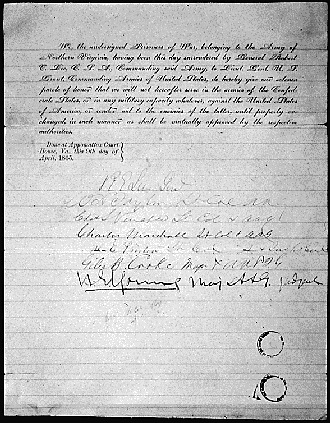 We, the undersigned Prisoners of War, belonging to the Army of
Northern Virginia, having been this day surrendered by General Robert
E. Lee, C. S. A., Commanding said Army, to Lieut. Genl. U. S.
Grant, Commanding Armies of United States, do hereby give our solemn
parole of honor that we will not hereafter serve in the armies of the Confed-
erate States, or in any military capacity whatever, against the United States
of America, or render aid to the enemies of the latter, until properly ex-
changed, in such manner as shall be mutually approved by the respective
authorities.
Done at Appomattox Court
House, Va., this 9th day of
April, 1865.
R E Lee Genl
W. H. Taylor Lt Col AAG
Chs S Venable Lt Col & AAG
Charles Marshall Lt Col & AAG
Lt Col
Giles B Cooke Maj & AAG
H E Young Maj AAG